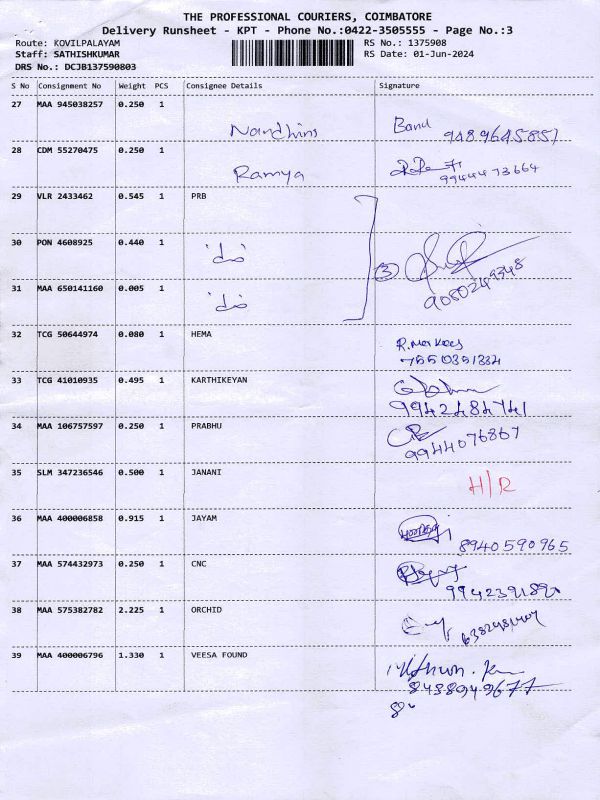 THE PROFESSIONAL COURIERS, COIMBATORE
Delivery Runsheet - KPT - Phone No.:0422-3505555 - Page No.:3
Route: KOVILPALAYAM RS No.: 1375908
Staff: SATHISHKUMAR RS Date: 01-Jun-2024
DRS No.: DCJB137590803
S No Consignment No Weight PCS Consignee Details Signature
27 MAA 945038257 0.250 1
Nandhins Banu 9489645851
28 CDM 55270475 0.250 1
Ramya 9944473664
29 VLR 2433462 0.545 1 PRB
30 PON 4608925 0.440 1
3
31 MAA 650141160 0.005 1
9080249348
32 TCG 50644974 0.080 1 HEMA
7550351334
33 TCG 41010935 0.495 1 KARTHIKEYAN
9942484741
34 MAA 106757597 0.250 1 PRABHU
9944076867
35 SLM 347236546 0.500 1 JANANI
H/R
36 MAA 400006858 0.915 1 JAYAM
8940590965
37 MAA 574432973 0.250 1 CNC
38 MAA 575382782 2.225 1 ORCHID
39 MAA 400006796 1.330 1 VEESA FOUND
8438949677